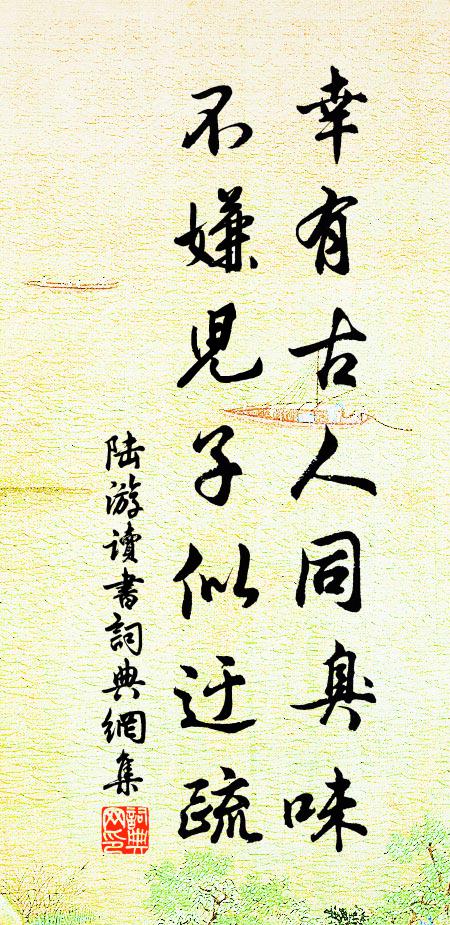 幸有古人同臭味
不嫌兒子似迂疏
陸游讀書詞典網集
詞典網印